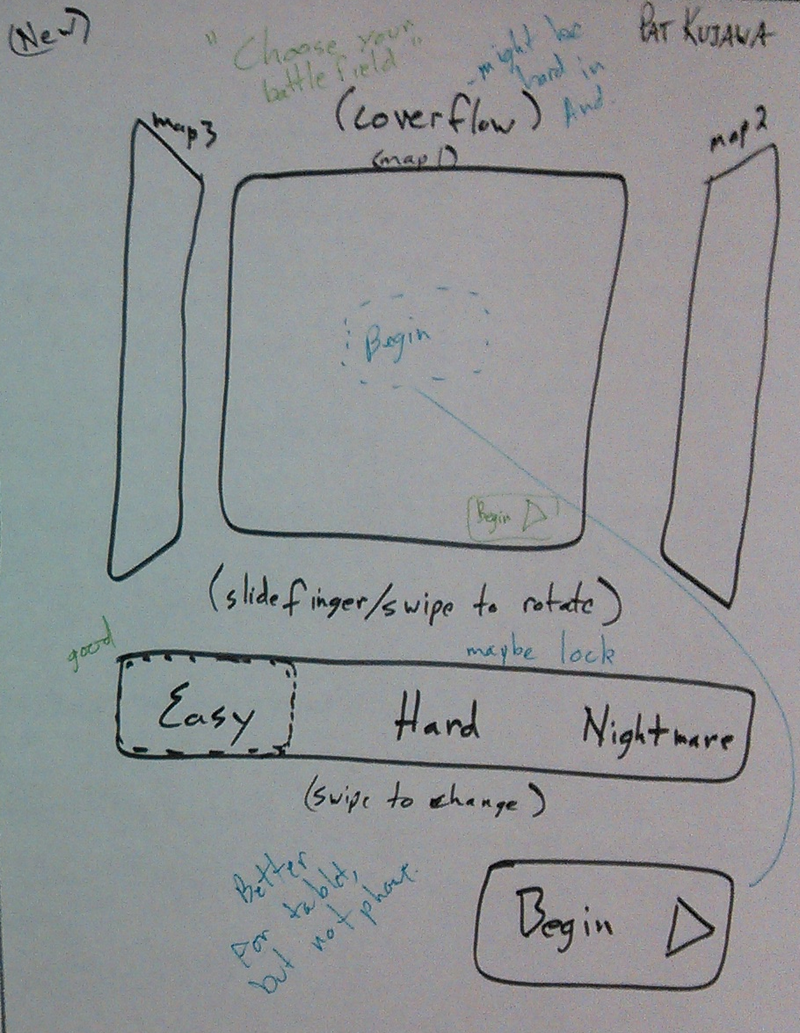 (New)
PAT KUJAWA
"Choose your
battlefield"
- might be
hard in
And.
(coverflow)
map3
(map 1)
map2
Begin
Begin
(slide finger/swipe to rotate)
good
maybe lock
Easy Hard Nightmare
(swipe to change)
Better
For tablet,
but not phone.
Begin